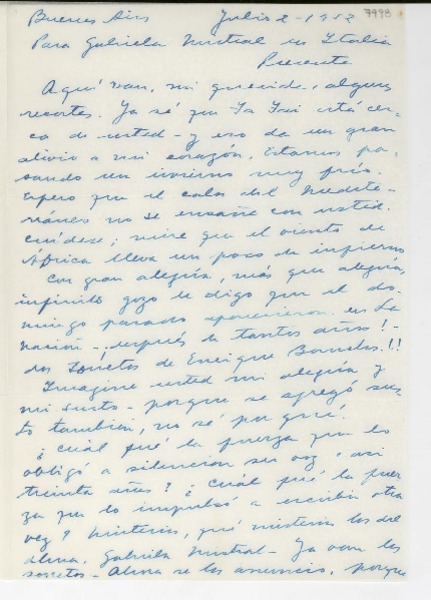 7998
Buenos Aires Julio 2 - 1952
Para Gabriela Mistral en Italia
Presente
Aquí van, mi querida, algunos
recortes. Ya sé que Ya Yai está cer-
ca de usted - y eso da un gran
alivio a mi corazón. Estamos pa-
sando un invierno muy frío.
Espero que el calor del Medite-
rráneo no se ensañe con usted.
cuídese; mire que el viento de
África lleva un poco de infierno
Con gran alegría, más que alegría,
infinito gozo le digo que el do-
mingo pasado aparecieron en La
Nación - ¡después de tantos años! -
dos Sonetos de Enrique Banchs!!
Imagine usted mi alegría y
mi susto - porque se agregó sus-
to también, no sé por qué.
¿Cuál fué la fuerza que lo
obligó a silenciar su voz, casi
treinta años? ¿Cuál fué la fuer
za que lo impulsó a escribir otra
vez? Misterios, qué misterios los del
alma, Gabriela Mistral - Ya van los
sonetos - Ahora se los anuncio, porque